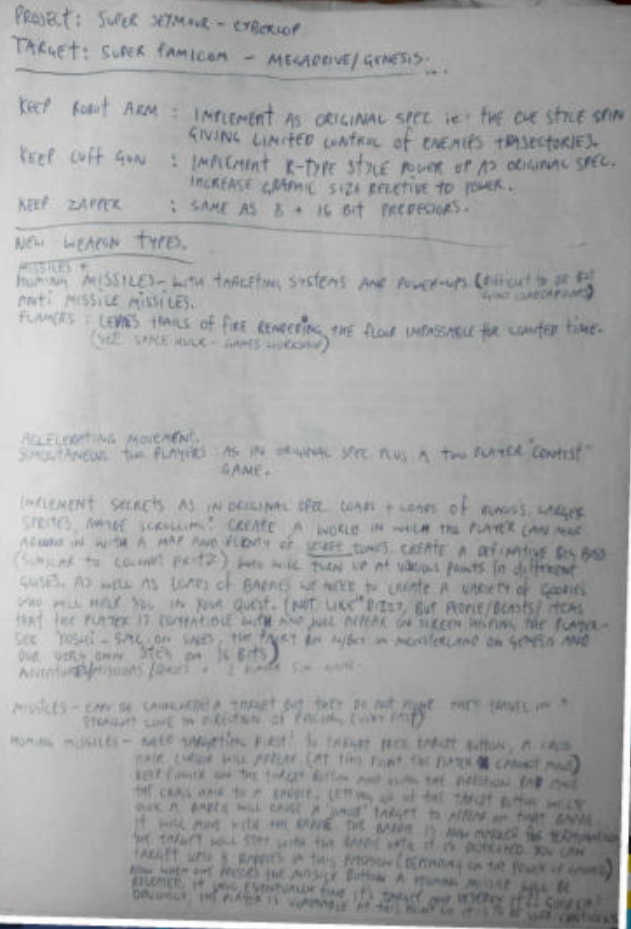 PROJECT: SUPER SEYMOUR - CYBERCOP
TARGET: SUPER FAMICOM - MEGADRIVE/GENESIS.
KEEP ROBOT ARM : IMPLEMENT AS ORIGINAL SPEC ie: THE CUE STYLE SPIN
GIVING LIMITED CONTROL OF ENEMIES TRAJECTORIES.
KEEP CUFF GUN : IMPLEMENT R-TYPE STYLE POWER UP AS ORIGINAL SPEC.
INCREASE GRAPHIC SIZE RELETIVE TO POWER.
KEEP ZAPPER : SAME AS 8 + 16 BIT
NEW WEAPON TYPES.
MISSILES +
HOMING MISSILES - WITH TARGETING SYSTEMS AND POWER-UPS (DIFFICULT TO
ANTI MISSILE MISSILES.
FLAMERS : TRAILS OF FIRE RENDERING THE FLOOR IMPASSABLE FOR LIMITED TIME.
(SEE SPACE HULK - GAMES WORKSHOP)
ACCELERATING MOVEMENT.
TWO PLAYERS : AS IN ORIGINAL SPEC PLUS A TWO PLAYER "CONTEST"
GAME.
IMPLEMENT SECRETS AS IN ORIGINAL SPEC. LOADS + LOADS OF LARGER
SPRITES, MAYBE SCROLLING? CREATE A WORLD IN WHICH THE PLAYER CAN
AROUND IN WITH A MAP AND PLENTY OF ZONES. CREATE A DEFINATIVE BIG BOSS
(SIMILAR TO WHO WILL TURN UP AT VARIOUS POINTS IN DIFFERENT
GUISES. AS WELL AS LOADS OF BADDIES WE NEED TO CREATE A VARIETY OF GOODIES
WHO WILL HELP YOU IN YOUR QUEST. (NOT LIKE DIZZY, BUT PEOPLE/BEASTS/ITEMS
THAT THE PLAYER IS COMPATIBLE WITH AND WILL APPEAR ON SCREEN HELPING THE PLAYER -
SEE YOSHI - THE FAIRY IN MONSTERLAND ON GENESIS AND
OUR VERY OWN ON 16 BITS)
+ 2 PLAYER GAME.
MISSILES - CAN BE LAUNCHED A TARGET BUT THEY DO NOT THEY TRAVEL IN A
STRAIGHT LINE IN DIRECTION OF FACING (VERY FAST)
HOMING MISSILES - NEED TARGETING FIRST! TO TARGET PRESS TARGET BUTTON, A CROSS
HAIR CURSOR WILL APPEAR (AT THIS POINT THE PLAYER CANNOT MOVE)
KEEP FINGER ON THE TARGET BUTTON AND USING THE DIRECTION PAD MOVE
THE CROSS HAIR TO A BADDIE. LETTING GO OF THE TARGET BUTTON WHILE
OVER A BADDIE WILL CAUSE A TARGET TO APPEAR ON THAT BADDIE.
IT WILL MOVE WITH THE BADDIE. THE BADDIE IS NOW MARKED FOR TERMINATION
THE TARGET WILL STAY WITH THE BADDIE UNTIL IT IS DESTROYED. YOU CAN
TARGET UPTO 8 BADDIES IN THIS FASHION (DEPENDING ON THE POWER UP
NOW WHEN ONE PRESSES THE MISSILE BUTTON A HOMING MISSILE WILL BE
RELEASED. IT WILL EVENTUALLY FIND IT'S TARGET AND DESTROY IT
THE PLAYER IS VULNERABLE AT THIS POINT SO IT IS TO BE